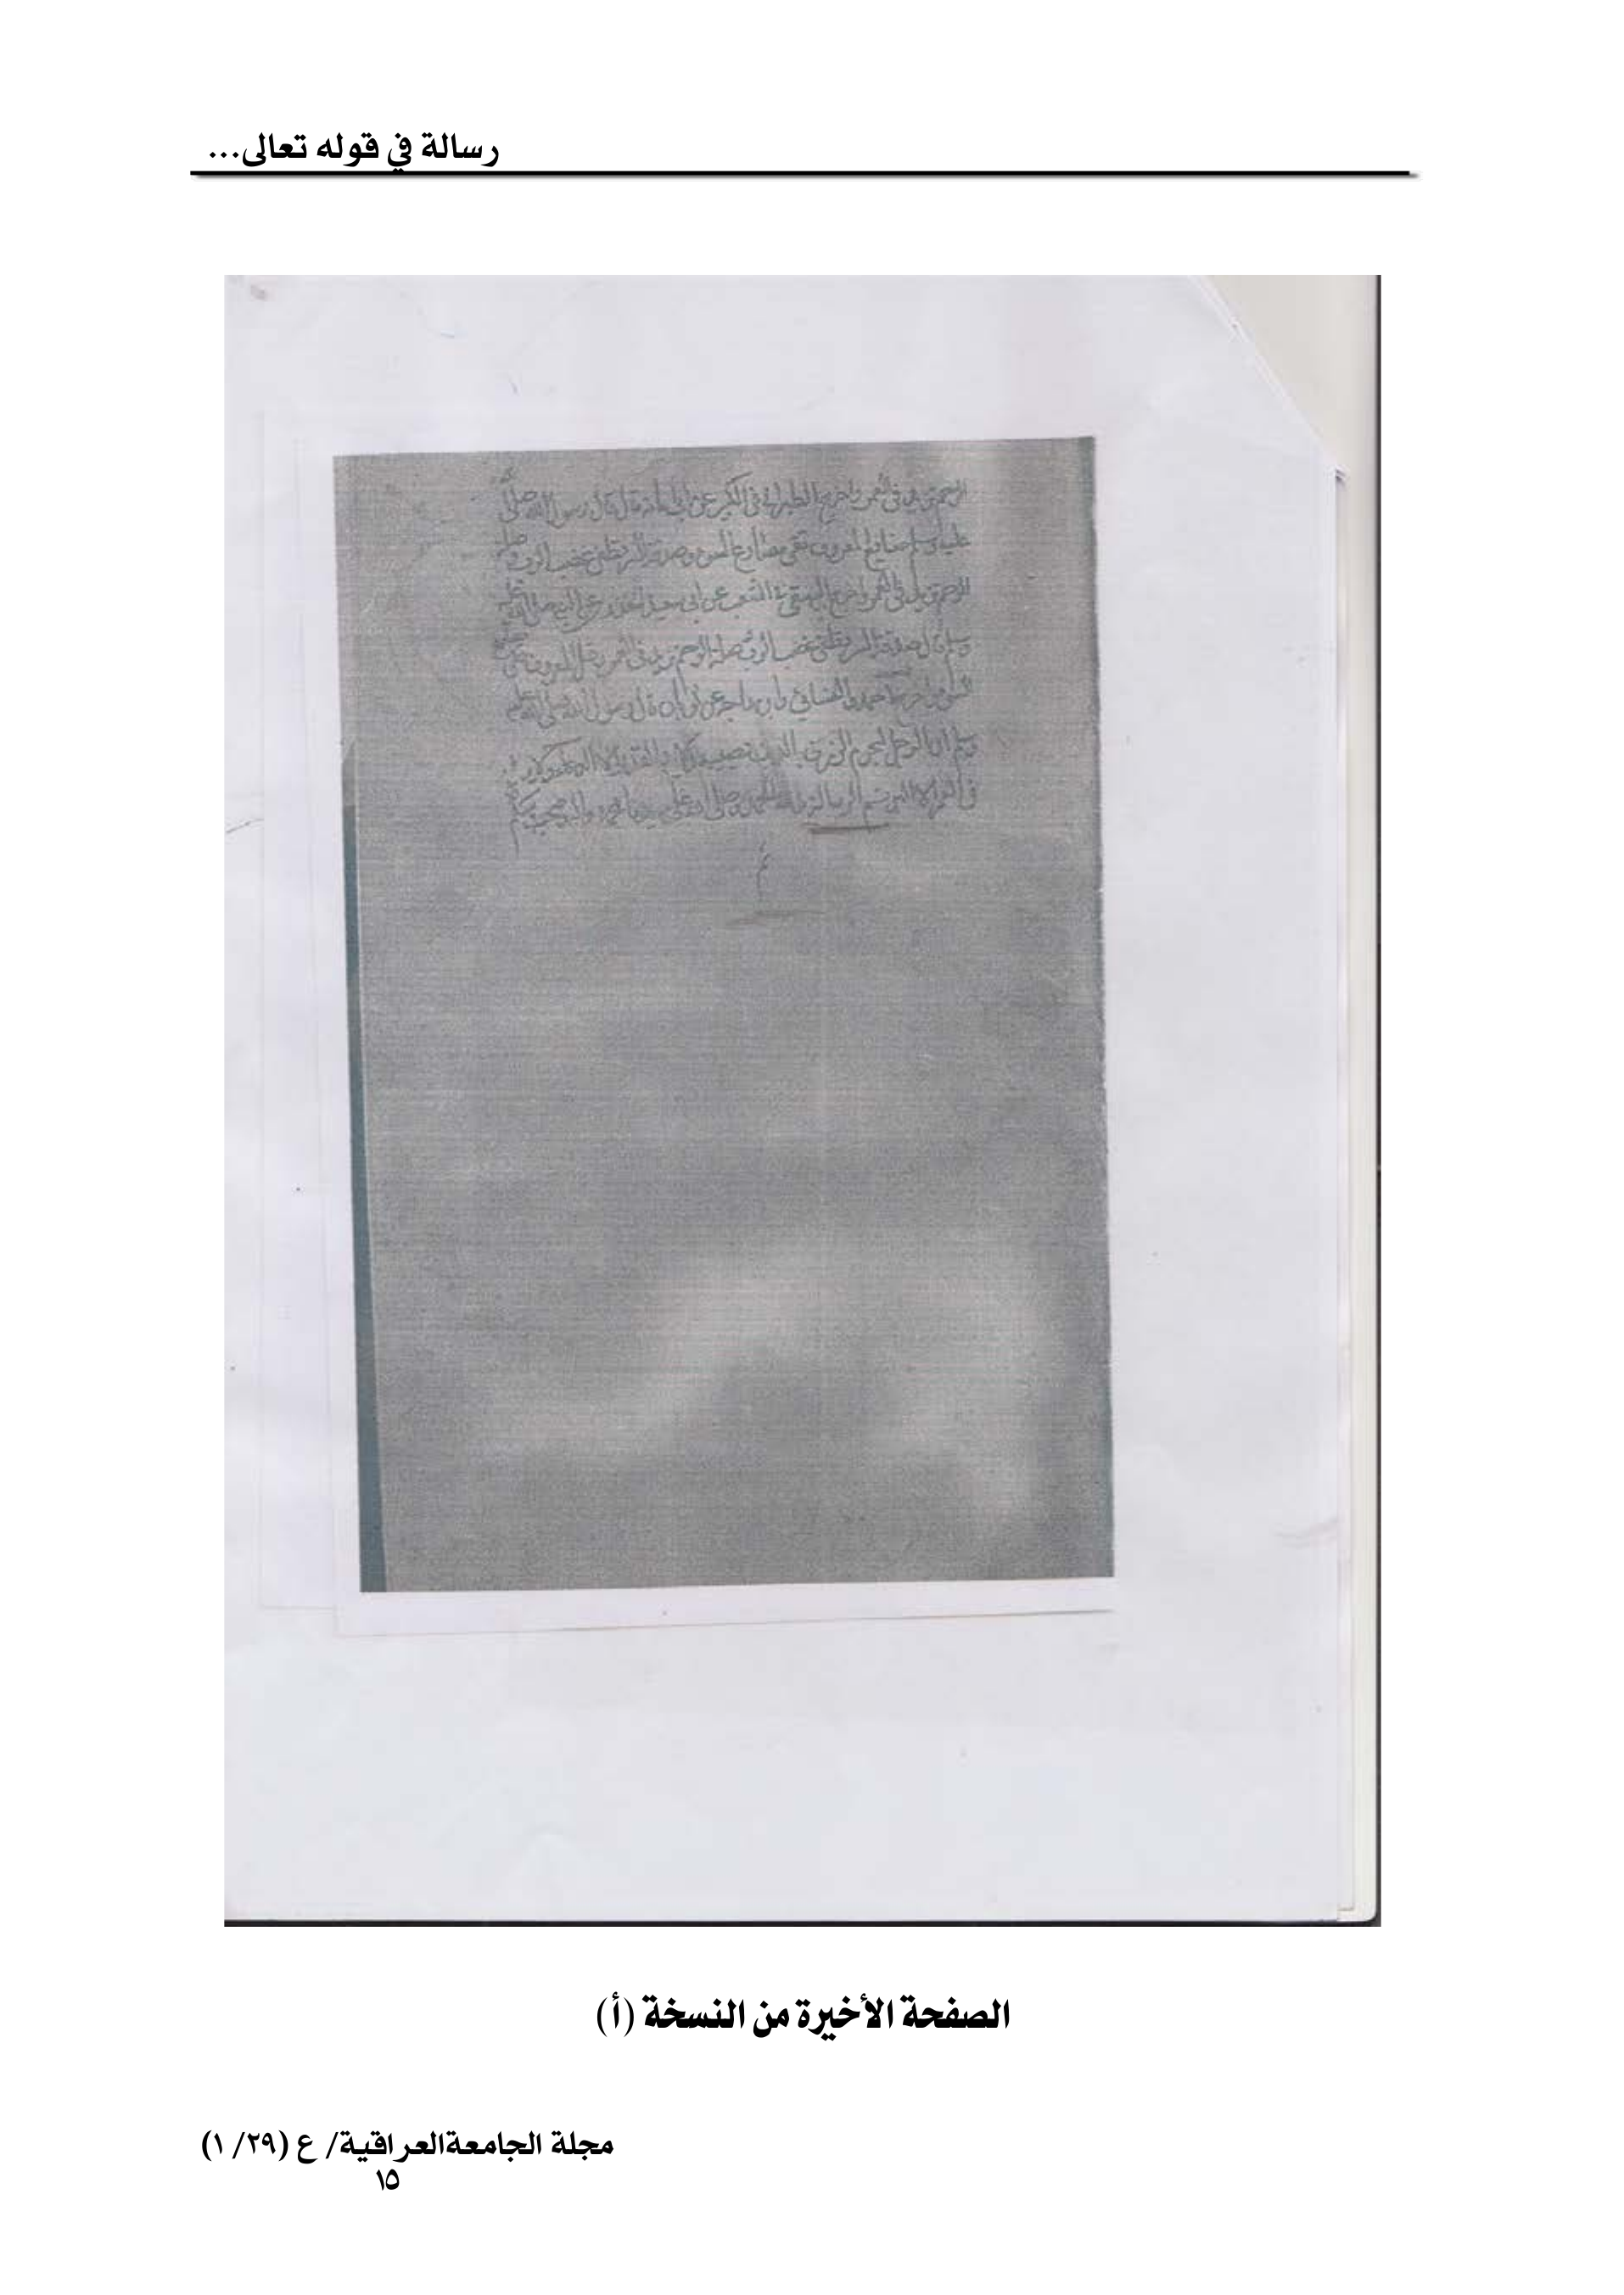 رسالة في قوله تعالى...
الرحم تزيد في العمر واخرج الطبراني في الكبير عن ابي امامة قال قال رسول الله صلى
عليه وسلم صنايع المعروف تقي مصارع السوء وصدقة السر تطفئ غضب الرب وصلة
الرحم تزيد في العمر واخرج البيهقي في الشعب عن ابي سعيد الخدري عن النبي صلى الله عليه
وسلم ان صدقة السر تطفئ غضب الرب وصلة الرحم تزيد في العمر وفعل المعروف يقي
السوء واخرج احمد والنسائي وابن ماجه عن ثوبان قال رسول الله صلى الله عليه
وسلم ان الرجل ليحرم الرزق بالذنب يصيبه ولا يرد القدر الا الدعاء ولا يزيد
في العمر الا البر تم الرسالة وصلى الله على سيدنا محمد واله وصحبه وسلم
تم
الصفحة الأخيرة من النسخة (أ)
مجلة الجامعة العراقية/ ع (٢٩/ ١)
١٥